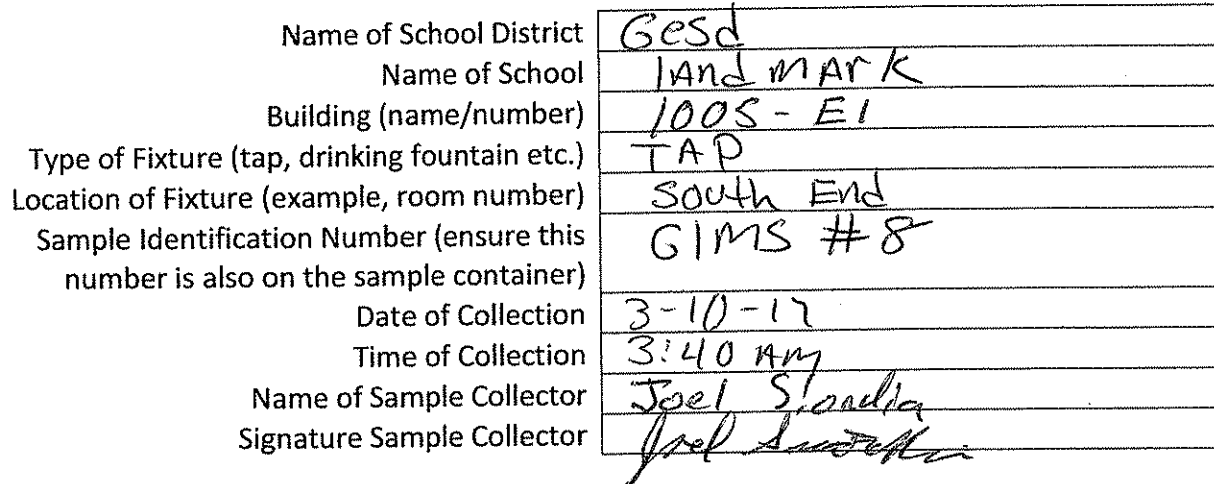 Name of School District Gesd
Name of School lAnd mArk
Building (name/number) 1005 - E1
Type of Fixture (tap, drinking fountain etc.) TAP
Location of Fixture (example, room number) South End
Sample Identification Number (ensure this GIMS #8
number is also on the sample container)
Date of Collection 3-10-17
Time of Collection 3:40 AM
Name of Sample Collector Joel
Signature Sample Collector Joel